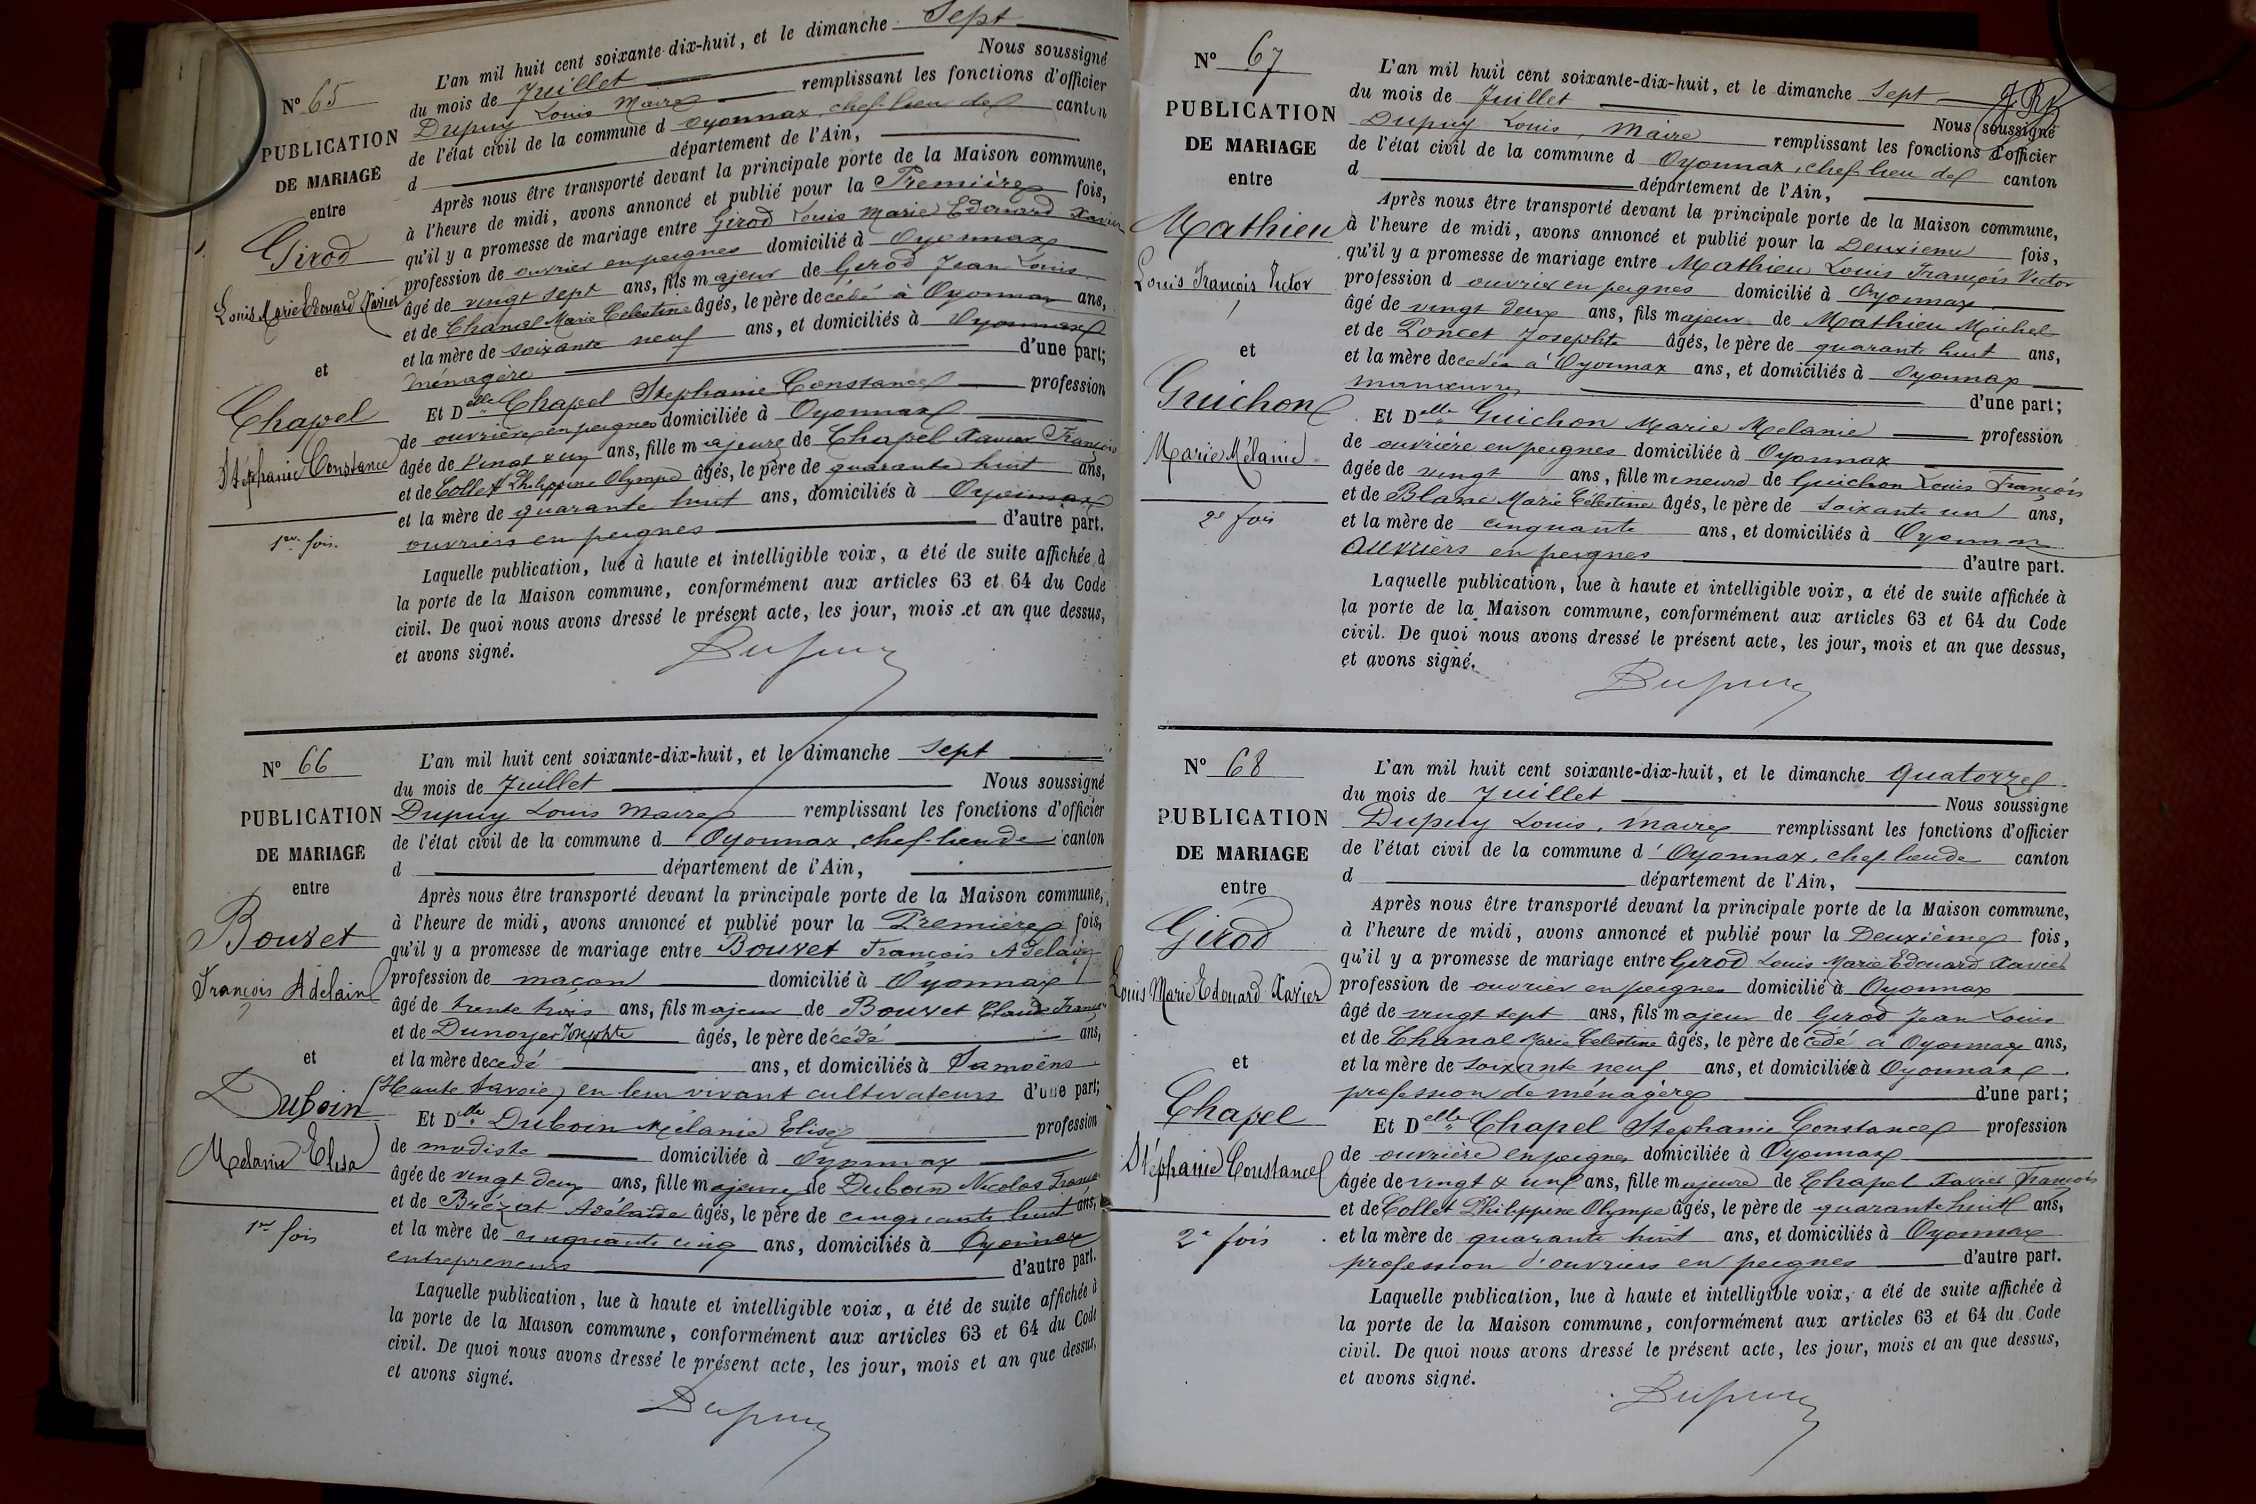 N° 65
PUBLICATION
DE MARIAGE
entre
Girod
Louis Marie Edouard Xavier
et
Chapel
Stéphanie Constance
1re fois.
L'an mil huit cent soixante-dix-huit, et le dimanche Sept
du mois de Juillet Nous soussigné
Dupuy Louis Maire remplissant les fonctions d'officier
de l'état civil de la commune d Oyonnax, chef-lieu de canton
d département de l'Ain,
Après nous être transporté devant la principale porte de la Maison commune,
à l'heure de midi, avons annoncé et publié pour la Première fois,
qu'il y a promesse de mariage entre Girod Louis Marie Edouard Xavier
profession de ouvrier en peignes domicilié à Oyonnax
âgé de vingt sept ans, fils majeur de Girod Jean Louis
et de Chanal Marie Celestine âgés, le père decédé à Oyonnax ans,
et la mère de soixante neuf ans, et domiciliés à Oyonnax
ménagère d'une part;
Et Delle Chapel Stephanie Constance profession
de ouvrière en peignes domiciliée à Oyonnax
âgée de vingt un ans, fille majeure de Chapel Xavier François
et de Collet Philippine Olympe âgés, le père de quarante huit ans,
et la mère de quarante huit ans, domiciliés à Oyonnax
ouvriers en peignes d'autre part.
Laquelle publication, lue à haute et intelligible voix, a été de suite affichée à
la porte de la Maison commune, conformément aux articles 63 et 64 du Code
civil. De quoi nous avons dressé le présent acte, les jour, mois et an que dessus,
et avons signé.
Dupuy
N° 66
PUBLICATION
DE MARIAGE
entre
Bouvet
François Adelain
et
Duboin
Melanie Elisa
1re fois
L'an mil huit cent soixante-dix-huit, et le dimanche sept
du mois de Juillet Nous soussigné
Dupuy Louis Maire remplissant les fonctions d'officier
de l'état civil de la commune d Oyonnax, chef-lieu de canton
d département de l'Ain,
Après nous être transporté devant la principale porte de la Maison commune,
à l'heure de midi, avons annoncé et publié pour la Première fois,
qu'il y a promesse de mariage entre Bouvet François Adelain
profession de maçon domicilié à Oyonnax
âgé de trente trois ans, fils majeur de Bouvet Claude
et de Dunoyer Josephte âgés, le père décédé ans,
et la mère decedé ans, et domiciliés à Samoëns
(Haute Savoie) en leur vivant cultivateurs d'une part;
Et Delle Duboin Mélanie Elise profession
de modiste domiciliée à Oyonnax
âgée de vingt deux ans, fille majeure de Duboin Nicolas
et de Brézat Adélaïde âgés, le père de cinquante huit ans,
et la mère de cinquante cinq ans, domiciliés à Oyonnax
entrepreneurs d'autre part.
Laquelle publication, lue à haute et intelligible voix, a été de suite affichée à
la porte de la Maison commune, conformément aux articles 63 et 64 du Code
civil. De quoi nous avons dressé le présent acte, les jour, mois et an que dessus,
et avons signé.
Dupuy
N° 67
PUBLICATION
DE MARIAGE
entre
Mathieu
Louis François Victor
et
Guichon
Marie Mélanie
2e fois
L'an mil huit cent soixante-dix-huit, et le dimanche Sept
du mois de Juillet Nous soussigné
Dupuy Louis, Maire remplissant les fonctions d'officier
de l'état civil de la commune d Oyonnax, chef-lieu de canton
d département de l'Ain,
Après nous être transporté devant la principale porte de la Maison commune,
à l'heure de midi, avons annoncé et publié pour la Deuxieme fois,
qu'il y a promesse de mariage entre Mathieu Louis François Victor
profession d ouvrier en peignes domicilié à Oyonnax
âgé de vingt deux ans, fils majeur de Mathieu Michel
et de Poncet Josephte âgés, le père de quarante huit ans,
et la mère decedée à Oyonnax ans, et domiciliés à Oyonnax
manœuvre d'une part;
Et Delle Guichon Marie Melanie profession
de ouvrière en peignes domiciliée à Oyonnax
âgée de vingt ans, fille mineure de Guichon Louis François
et de Blanc Marie Célestine âgés, le père de soixante un ans,
et la mère de cinquante ans, et domiciliés à Oyonnax
ouvriers en peignes d'autre part.
Laquelle publication, lue à haute et intelligible voix, a été de suite affichée à
la porte de la Maison commune, conformément aux articles 63 et 64 du Code
civil. De quoi nous avons dressé le présent acte, les jour, mois et an que dessus,
et avons signé.
Dupuy
N° 68
PUBLICATION
DE MARIAGE
entre
Girod
Louis Marie Edouard Xavier
et
Chapel
Stéphanie Constance
2e fois
L'an mil huit cent soixante-dix-huit, et le dimanche quatorze
du mois de Juillet Nous soussigné
Dupuy Louis, Maire remplissant les fonctions d'officier
de l'état civil de la commune d'Oyonnax, chef-lieu de canton
d département de l'Ain,
Après nous être transporté devant la principale porte de la Maison commune,
à l'heure de midi, avons annoncé et publié pour la Deuxième fois,
qu'il y a promesse de mariage entre Girod Louis Marie Edouard Xavier
profession de ouvrier en peignes domicilié à Oyonnax
âgé de vingt sept ans, fils majeur de Girod Jean Louis
et de Chanal Marie Celestine âgés, le père decédé à Oyonnax ans,
et la mère de soixante neuf ans, et domiciliée à Oyonnax
profession de ménagère d'une part;
Et Delle Chapel Stephanie Constance profession
de ouvrière en peignes domiciliée à Oyonnax
âgée de vingt & un ans, fille majeure de Chapel Xavier François
et de Collet Philippine Olympe âgés, le père de quarante huit ans,
et la mère de quarante huit ans, et domiciliés à Oyonnax
profession d'ouvriers en peignes d'autre part.
Laquelle publication, lue à haute et intelligible voix, a été de suite affichée à
la porte de la Maison commune, conformément aux articles 63 et 64 du Code
civil. De quoi nous avons dressé le présent acte, les jour, mois et an que dessus,
et avons signé.
Dupuy